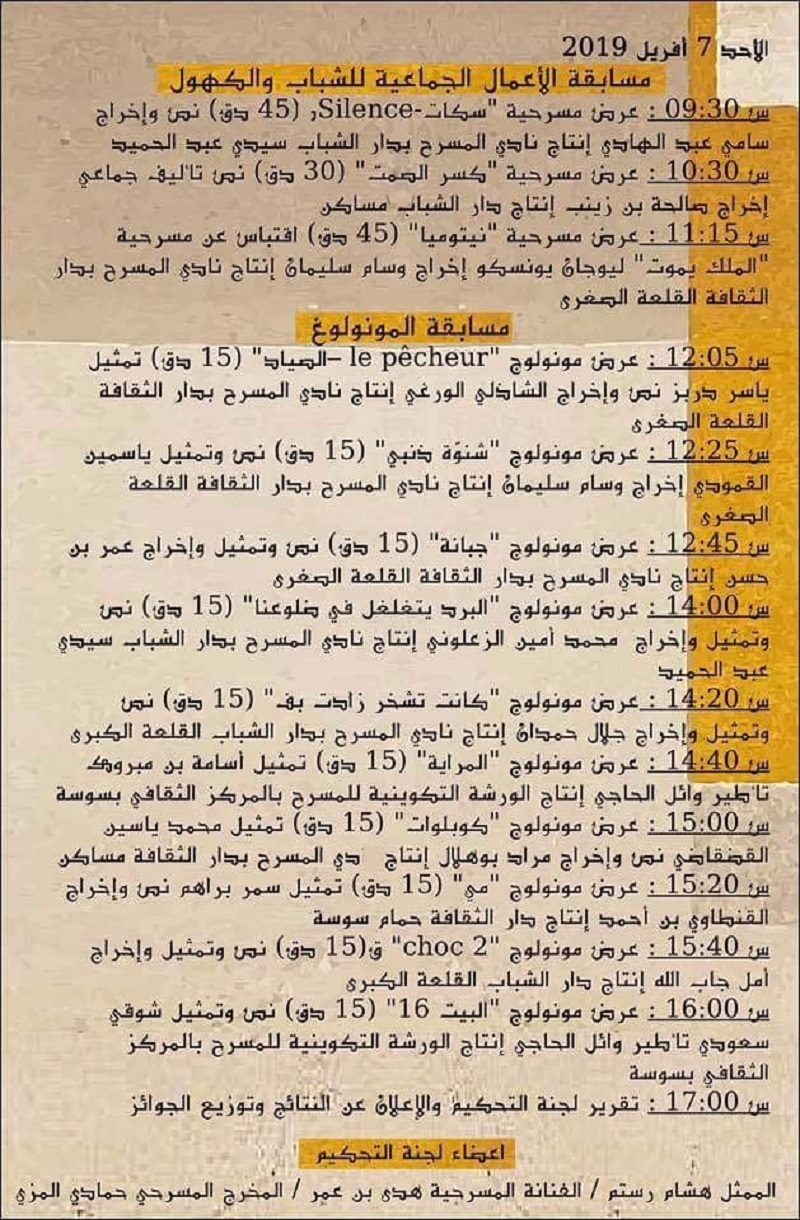 الأحد 7 أفريل 2019
مسابقة الأعمال الجماعية للشباب والكهول
س 09:30 : عرض مسرحية "سكات-Silence, (45 دق) نص وإخراج
سامي عبد الهادي إنتاج نادي المسرح بدار الشباب سيدي عبد الحميد
س 10:30 : عرض مسرحية "كسر الصمت" (30 دق) نص تأليف جماعي
إخراج صالحة بن زينب إنتاج دار الشباب مساكن
س 11:15 : عرض مسرحية "نيتوميا" (45 دق) اقتباس عن مسرحية
"الملك يموت" ليوجان يونسكو إخراج وسام سليمان إنتاج نادي المسرح بدار
الثقافة القلعة الصغرى
مسابقة المونولوغ
س 12:05 : عرض مونولوج "le pêcheur –الصياد" (15 دق) تمثيل
ياسر دربز نص وإخراج الشاذلي الورغي إنتاج نادي المسرح بدار الثقافة
القلعة الصغرى
س 12:25 : عرض مونولوج "شنوّة ذنبي" (15 دق) نص وتمثيل ياسمين
القمودي إخراج وسام سليمان إنتاج نادي المسرح بدار الثقافة القلعة
الصغرى
س 12:45 : عرض مونولوج "جبانة" (15 دق) نص وتمثيل وإخراج عمر بن
حسن إنتاج نادي المسرح بدار الثقافة القلعة الصغرى
س 14:00 : عرض مونولوج "البرد يتغلغل في ضلوعنا" (15 دق) نص
وتمثيل وإخراج محمد أمين الزعلوني إنتاج نادي المسرح بدار الشباب سيدي
عبد الحميد
س 14:20 : عرض مونولوج "كانت تشخر زادت بف" (15 دق) نص
وتمثيل وإخراج جلال حمدان إنتاج نادي المسرح بدار الشباب القلعة الكبرى
س 14:40 : عرض مونولوج "المراية" (15 دق) تمثيل أسامة بن مبروك
تأطير وائل الحاجي إنتاج الورشة التكوينية للمسرح بالمركز الثقافي بسوسة
س 15:00 : عرض مونولوج "كوبلوات" (15 دق) تمثيل محمد ياسين
القضقاضي نص وإخراج مراد بوهلال إنتاج دي المسرح بدار الثقافة مساكن
س 15:20 : عرض مونولوج "مي" (15 دق) تمثيل سمر براهم نص وإخراج
القنطاوي بن أحمد إنتاج دار الثقافة حمام سوسة
س 15:40 : عرض مونولوج "choc 2" ق(15 دق) نص وتمثيل وإخراج
أمل جاب الله إنتاج دار الشباب القلعة الكبرى
س 16:00 : عرض مونولوج "البيت 16" (15 دق) نص وتمثيل شوقي
سعودي تأطير وائل الحاجي إنتاج الورشة التكوينية للمسرح بالمركز
الثقافي بسوسة
س 17:00 : تقرير لجنة التحكيم والإعلان عن النتائج وتوزيع الجوائز
اعضاء لجنة التحكيم
الممثل هشام رستم / الفنانة المسرحية هدى بن عمر / المخرج المسرحي حمادي المزي